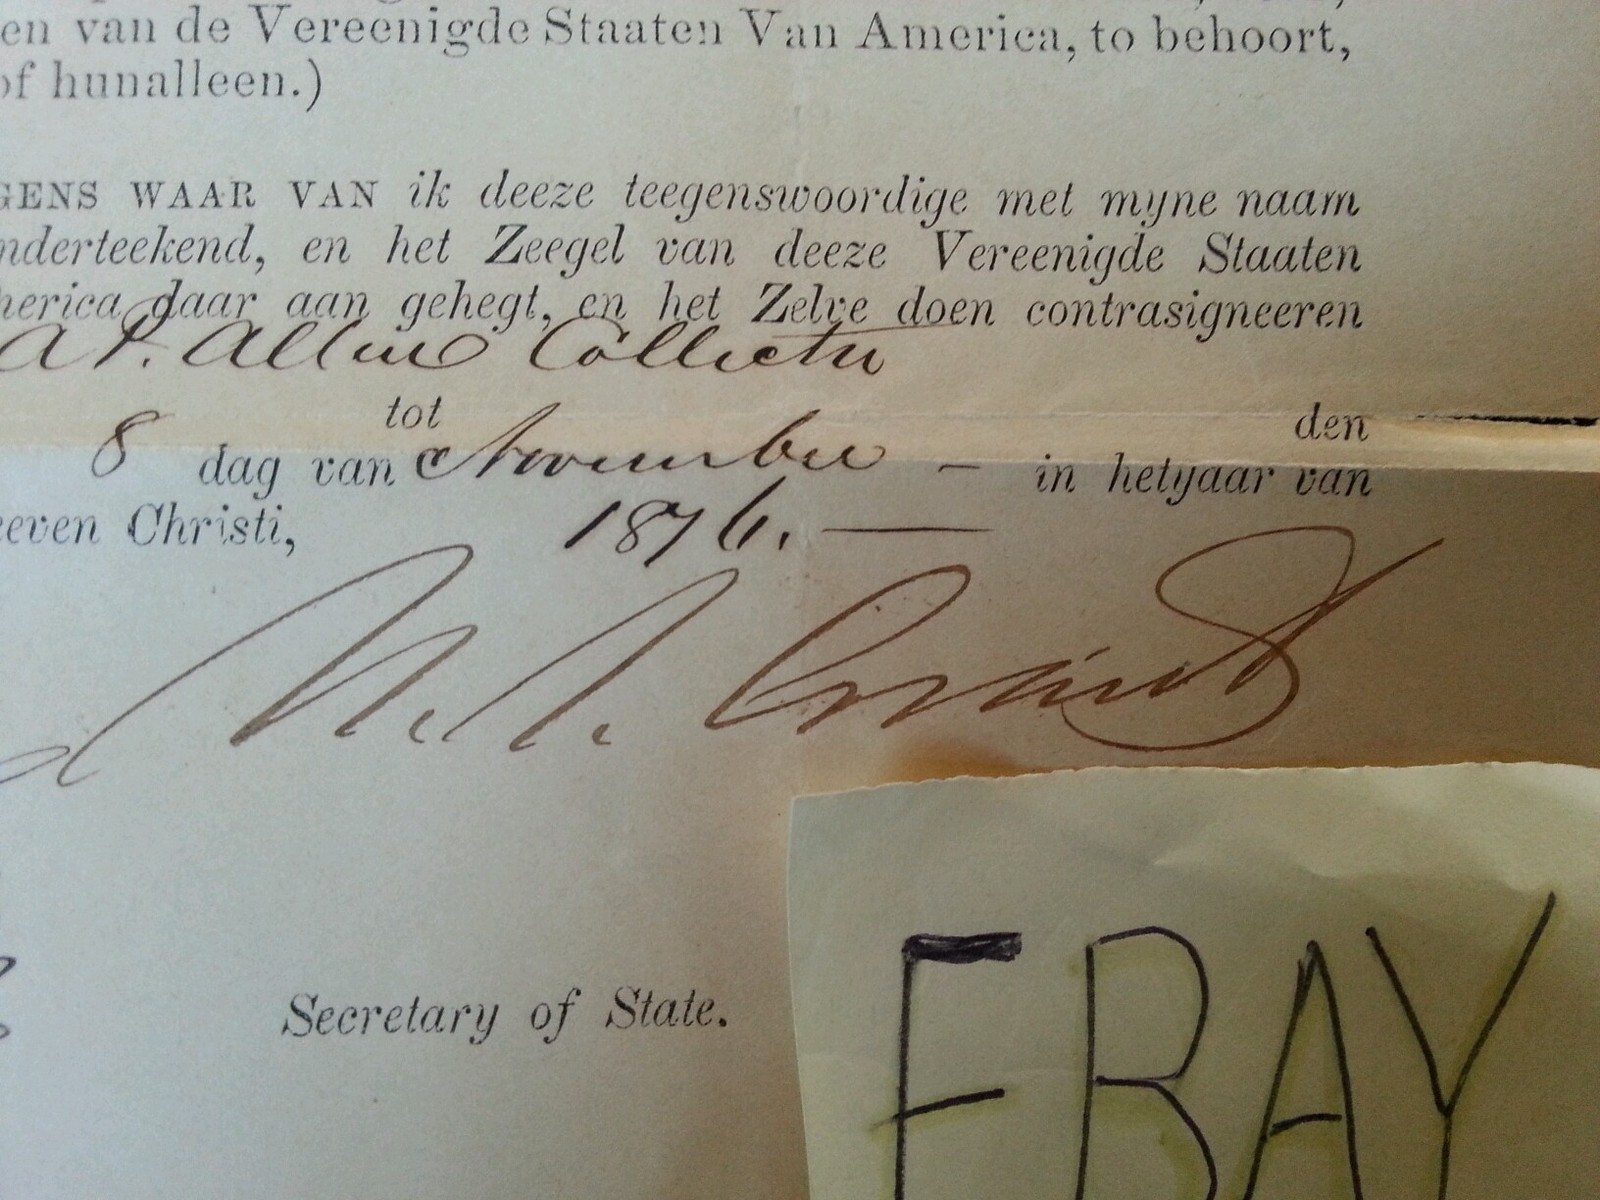 en van de Vereenigde Staaten Van America, to behoort,
of hunalleen.)
GENS WAAR VAN ik deeze teegenswoordige met myne naam
nderteekend, en het Zeegel van deeze Vereenigde Staaten
merica daar aan gehegt, en het Zelve doen contrasigneeren
Collector
tot den
8 dag van November – in hetyaar van
eeven Christi, 1876. —
U. S. Grant
Secretary of State.
EBAY